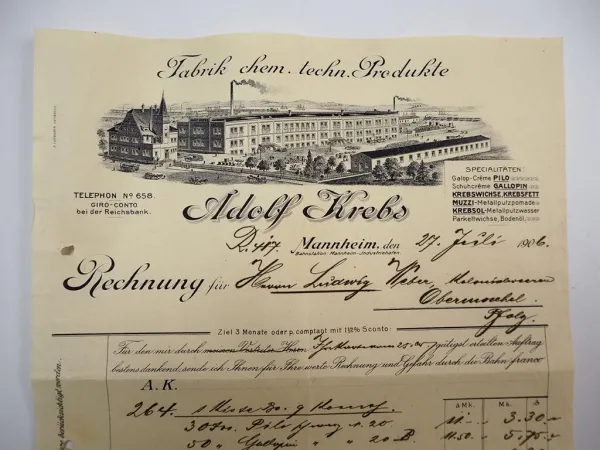 Fabrik chem. techn. Produkte
TELEPHON No 658.
GIRO-CONTO
bei der Reichsbank.
SPECIALITÄTEN:
Galop-Crême PILO
Schuhcrême GALLOPIN
KREBSWICHSE, KREBSFETT
MUZZI-Metallputzpomade
KREBSOL-Metallputzwasser
Parkettwichse, Bodenöl.
Adolf Krebs
Mannheim, den 27. Juli 1906.
Bahnstation: Mannheim-Industriehafen.
Rechnung für Herrn Ludwig Weber,
Obermoschel
Pfalz.
Ziel 3 Monate oder p. comptant mit 1½% Sconto:
Für den mir durch meinen Vertreter Herrn gütigst erteilten Auftrag
bestens dankend, sende ich Ihnen für Ihre werte Rechnung und Gefahr durch die Bahn franco
A. K.
264. 1 Kiste
à Mk. Mk.
30 Pilo 20 11.- 3.30
50 Gallopin " " 20 B. 11.50 5.75